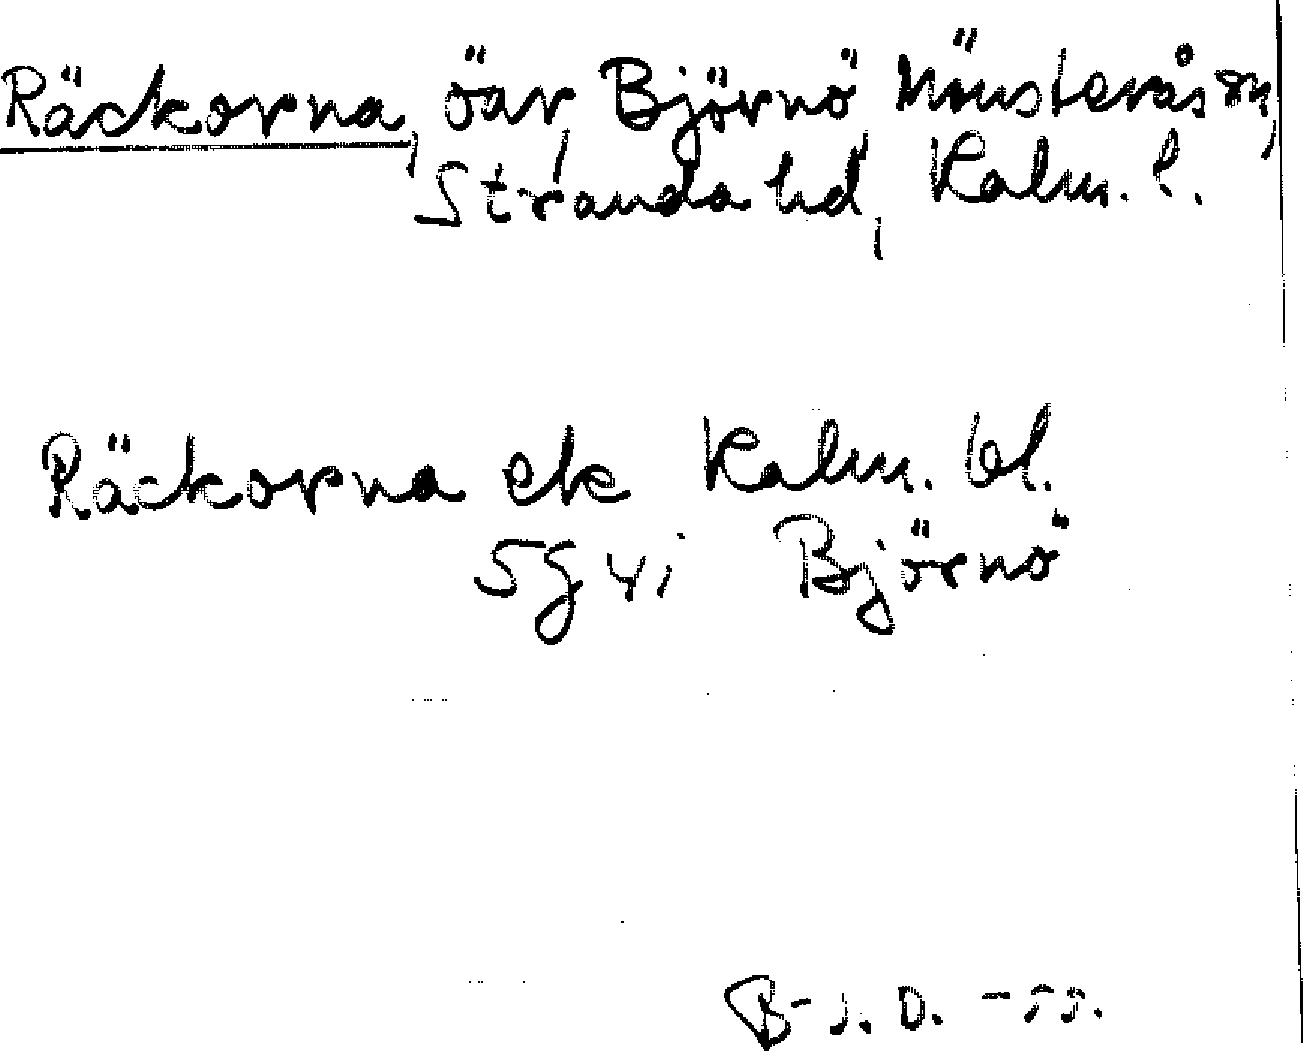 Räckorna, öar, Björnö Mönsterås sn,
Stranda hd, Kalm. l.
Räckorna ek Kalm. bl.
5g4i Björnö
B-J. D. -55.